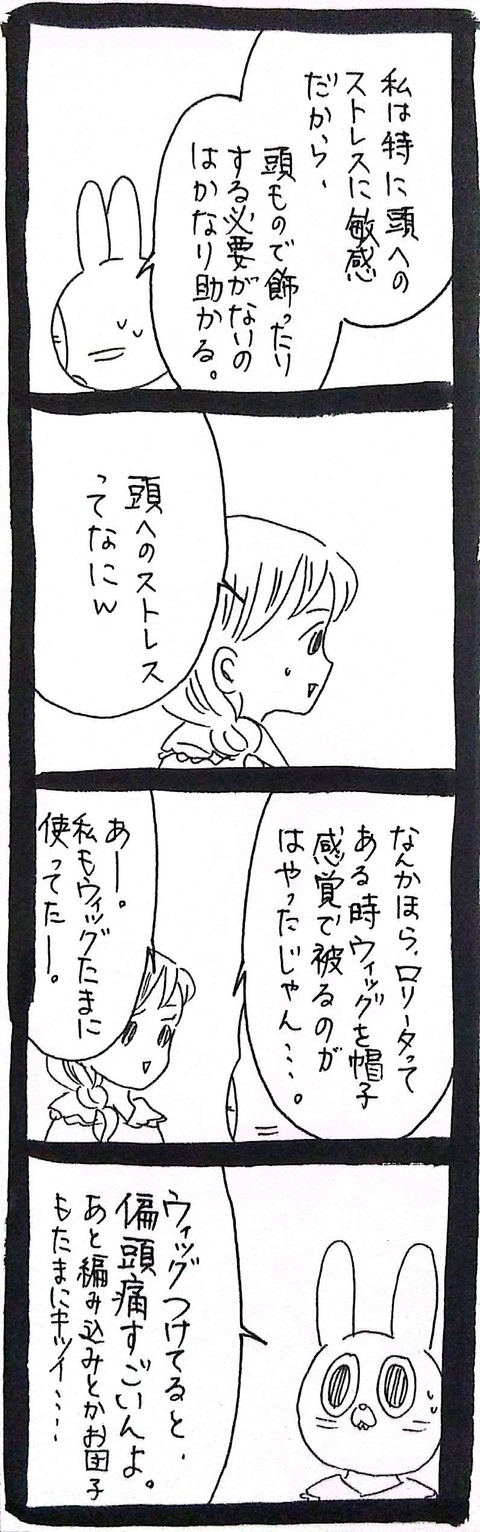 私は特に頭への
ストレスに敏感
だから、
頭もので飾ったり
する必要がないの
はかなり助かる。
頭へのストレス
ってなにw
なんかほら、ロリータって
ある時ウィッグを帽子
感覚で被るのが
はやったじゃん…。
あー。
私もウィッグたまに
使ってたー。
ウィッグつけてると、
偏頭痛すごいんよ。
あと編み込みとかお団子
もたまにキツイ…